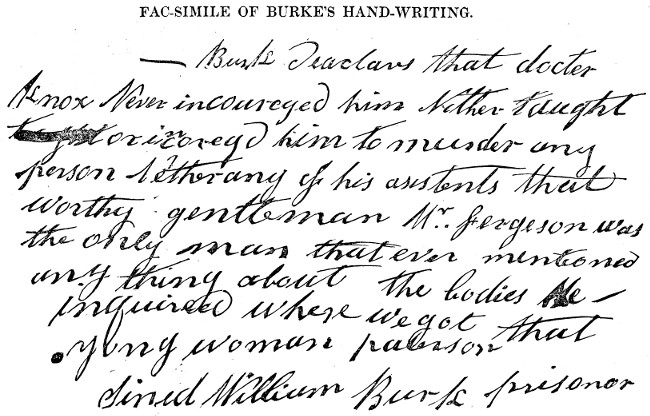 FAC-SIMILE OF BURKE'S HAND-WRITING.
— Burk deaclars that docter
Knox Never incoureged him Nither taught
or incoregd him to murder any
person Netherany of his asistents that
worthy gentleman Mr. Fergeson was
the only man that ever mentioned
any thing about the bodies He —
inquired where we got that
yong woman paterson
Sined William Burk prisonor